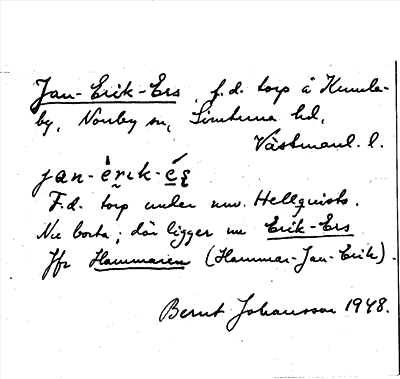 Jan-Erik-Ers, f.d. torp å Kumla-
by, Norrby sn, Simtuna hd,
Västmanl. l.
jan-èrik-éʂ
F.d. torp under nuv. Hellquists.
Nu borta; där ligger nu Erik-Ers
Jfr Hammaren (Hammar-Jan-Erik).
Bernt Johansson 1948.